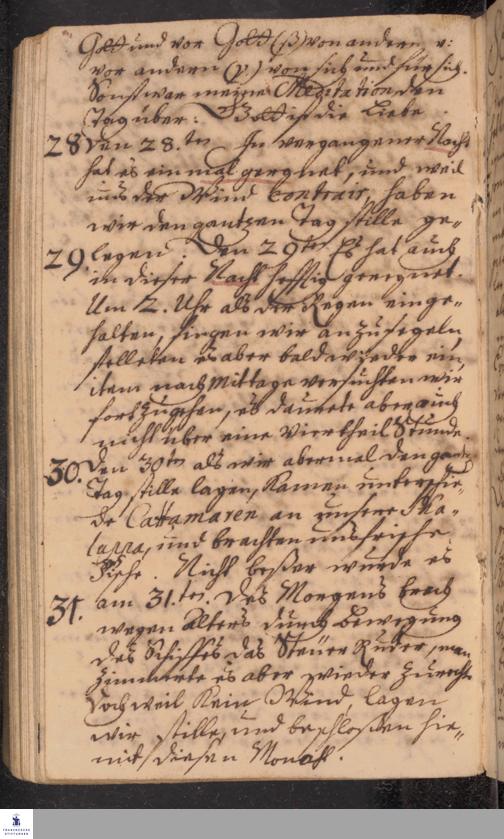 Gott und vor Gott (β) von andern v:
vor andern (γ.) von sich und für sich.
Sonst war meine Meditation den
Tag über: Gott ist die Liebe.
28 Den 28.ten In vergangener Nacht
hat es einmal geregnet, und weil
uns der Wind contrair, haben
wir den gantzen Tag stille ge-
29. legen. Den 29ten Es hat auch
in dieser Nacht hefftig geregnet.
Um 2. Uhr als der Regen einge-
halten, fingen wir an zu segeln
stelleten es aber bald wieder ein,
item nach Mittage versuchten wir
fortzugehen, es daurete aber auch
nicht über eine Viertheil Stunde.
30. Den 30ten als wir abermal den gantzen
Tag stille lagen, kamen unterschie-
de Cattamaren an unsere
und brachten uns frische
Fische. Nicht beßer wurde es
31. am 31.ten. Des Morgens brach
wegen Alters durch Bewegung
des Schiffes das Steuer Ruder, man
zimmerte es aber wieder zurecht.
Doch weil kein Wind, lagen
wir stille, und beschloßen hie-
mit diesen Monath.
FRANCKESCHE STIFTUNGEN